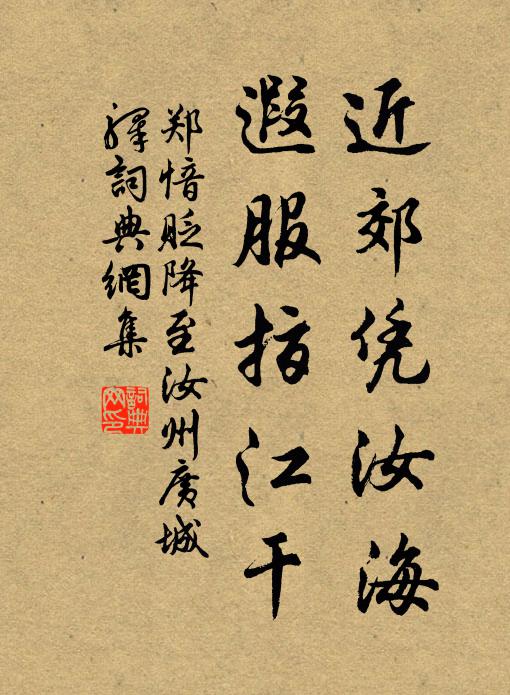 近郊凭汝海
遐服指江干
郑愔贬降至汝州广城
驿词典網集
詞典
网印